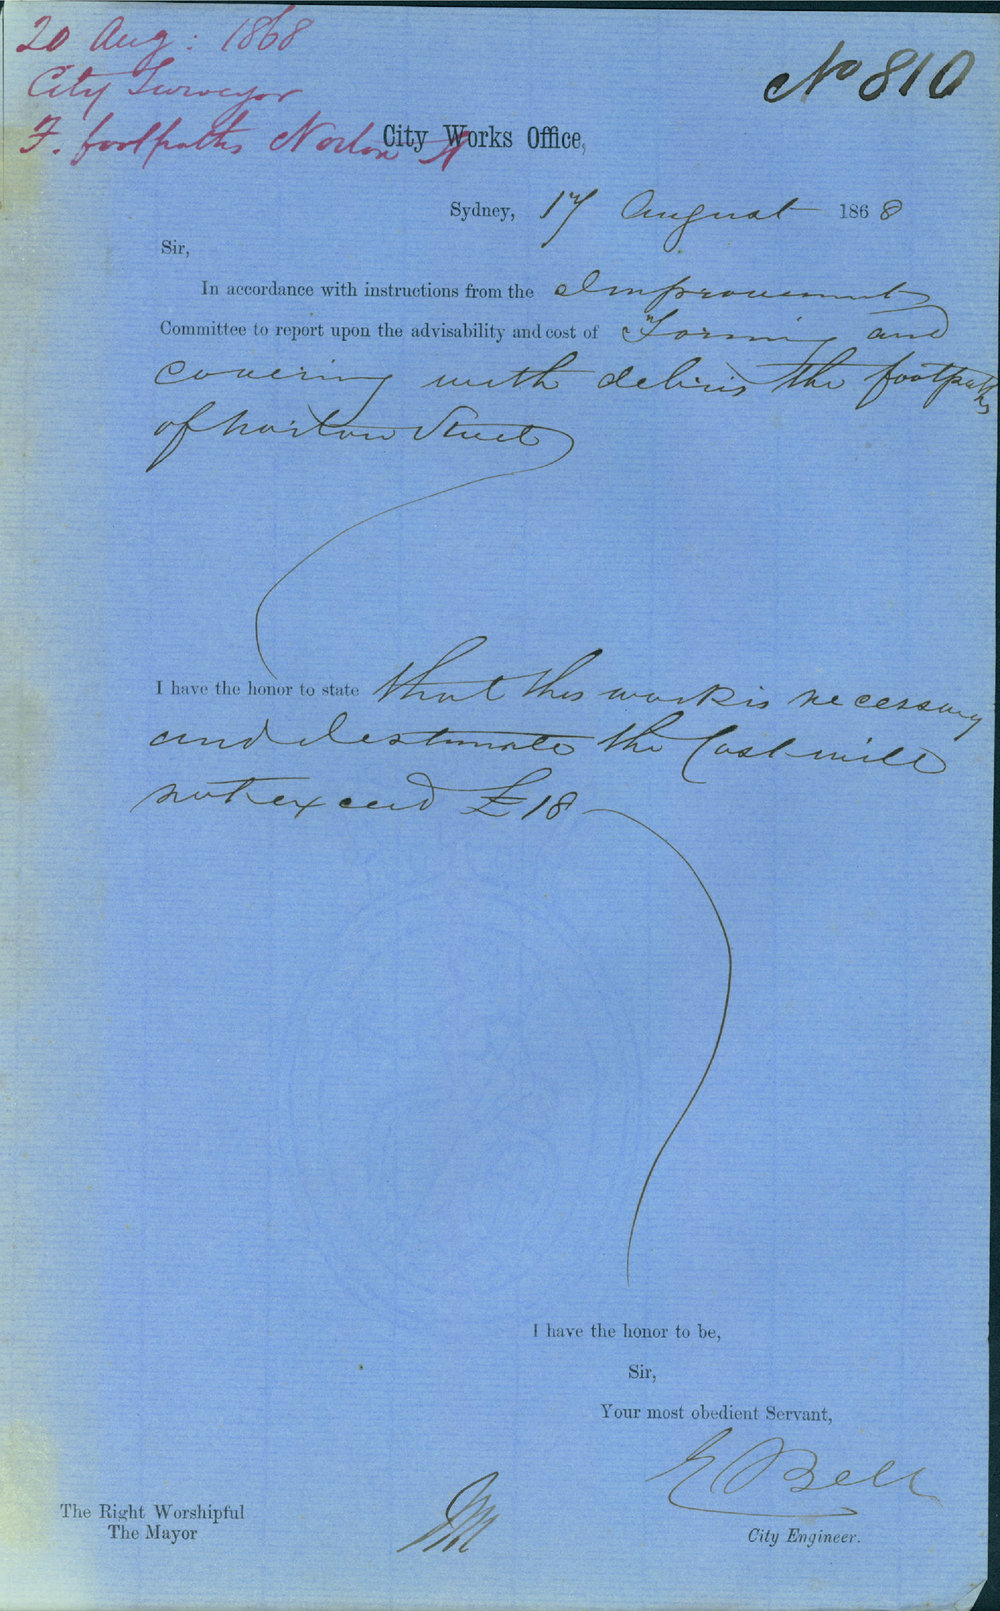 20 Aug: 1868
City Surveyor
F. footpaths Norton St
No 810
City Works Office,
Sydney, 17 August 1868
Sir,
In accordance with instructions from the Improvement
Committee to report upon the advisability and cost of Forming and
covering with debris the footpaths
of Norton Street
I have the honor to state that this work is necessary
and I estimate the Cost will
not exceed £18
I have the honor to be,
Sir,
Your most obedient Servant,
E Bell
City Engineer.
The Right Worshipful
The Mayor